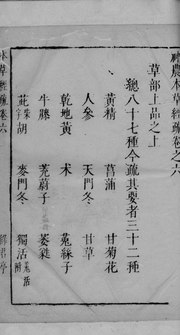 神農本草經疏卷之六
草部上品之上
總八十七種今疏其要者三十二種
黃精 菖蒲 甘菊花
人參 天門冬 甘草
乾地黃 术 菟絲子
牛膝 茺蔚子 萎蕤
茈胡 麥門冬 獨活
本草經疏卷六